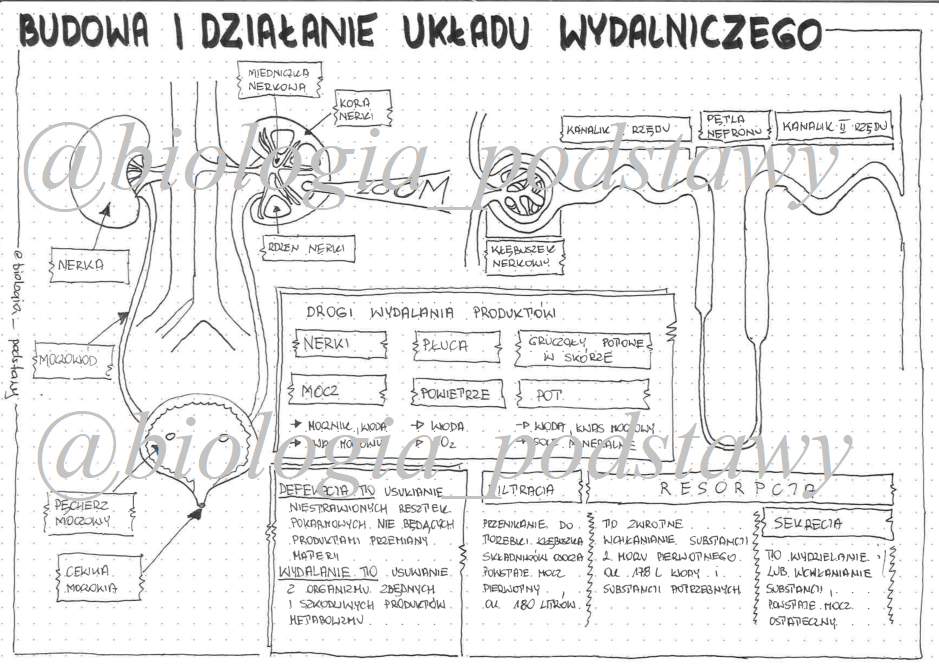 BUDOWA I DZIAŁANIE UKŁADU WYDALNICZEGO
MIEDNICZKA
NERKOWA
KORA
NERKI
ZOOM
RDZEŃ NERKI
NERKA
MOCZOWÓD
PĘCHERZ
MOCZOWY
CEWKA
MOCZOWA
KANALIK I RZĘDU
PĘTLA
NEFRONU
KANALIK II RZĘDU
KŁĘBUSZEK
NERKOWY
@biologia_podstawy
@biologia_podstawy
DROGI WYDALANIA PRODUKTÓW
NERKI
PŁUCA
GRUCZOŁY POTOWE
W SKÓRZE
MOCZ
POWIETRZE
POT
→ MOCZNIK, WODA
→ KWAS MOCZOWY
→ WODA
→ CO2
→ WODA, KWAS MOCZOWY
→ SOLE MINERALNE
DEFEKACJA TO USUWANIE
NIESTRAWIONYCH RESZTEK
POKARMOWYCH. NIE BĘDĄCYCH
PRODUKTAMI PRZEMIANY
MATERII
WYDALANIE TO USUWANIE
Z ORGANIZMU ZBĘDNYCH
I SZKODLIWYCH PRODUKTÓW
METABOLIZMU
FILTRACJA
PRZENIKANIE DO
TOREBKI KŁĘBUSZKA
SKŁADNIKÓW OSOCZA
POWSTAJE MOCZ
PIERWOTNY
OK. 180 LITRÓW.
RESORPCJA
TO ZWROTNE
WCHŁANIANIE SUBSTANCJI
Z MOCZU PIERWOTNEGO.
OK. 178 L WODY I
SUBSTANCJI POTRZEBNYCH
SEKRECJA
TO WYDZIELANIE
LUB WCHŁANIANIE
SUBSTANCJI,
POWSTAJE MOCZ
OSTATECZNY.
@biologia_podstawy